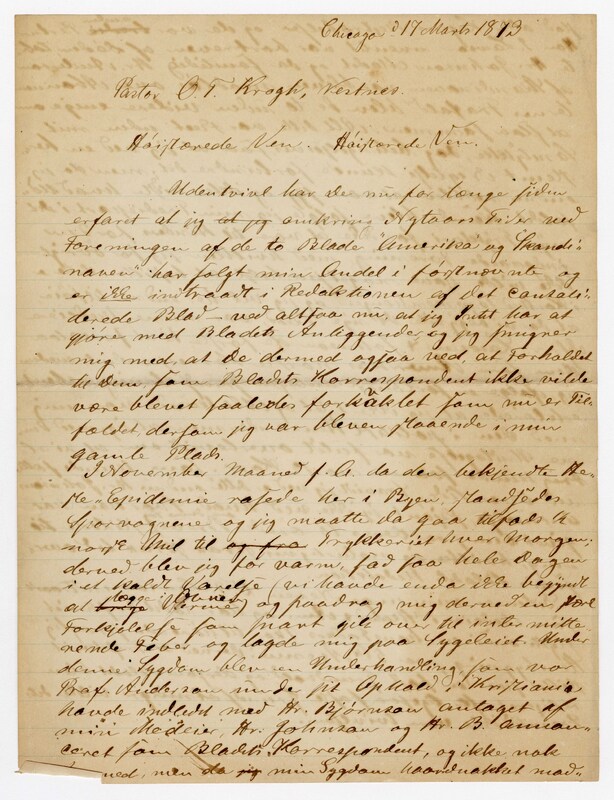 Chicago d 17 Marts 1873
Pastor O. T. Krogh, Vestnes.
Høistærede Ven. Høistærede Ven.
Udentvivl har De nu for længe siden
erfaret at jeg at jeg omkring Nytaars Tider ved
Foreningen af de to Blade "Amerika og Skandi-
naven" har solgt min Andel i førstnævnte og
er ikke indtraadt i Redaktionen af det
derede Blad – ved altsaa nu, at jeg Intet har at
gjøre med Bladets Anliggender, og jeg smigrer
mig med, at De dermed ogsaa ved, at Forholdet
til Dem som Bladets Korrespondent ikke vilde
være blevet saaledes forkäklet som nu er Til-
fældet, dersom jeg var bleven staaende i min
gamle Plads.
I November Maaned f. A. da den bekjendte He-
ste-Epidemie rasede her i Byen, standsedes
Sporvognene og jeg maatte da gaa tilfods
Mil til og fra Trykkeriet hver Morgen;
derved blev jeg for varm, sad saa hele Dagen
i et koldt Værelse (vi havde enda ikke begyndt
at lægge i Ovnen) og paadrog mig derved en svær
Forkjølelse som snart gik over til intermitte-
rende Feber og lagde mig paa Sygeleiet. Under
denne Sygdom blev en Underhandling som vor
Prof. Anderson under sit Ophold i Kristiania
havde indledet med Hr. Bjørnson antaget af
min Medeier, Hr. Johnson og Hr. B. annon-
ceret som Bladets Korrespondent, og ikke nok
med, men da jeg min Sygdom haardnakket mod-